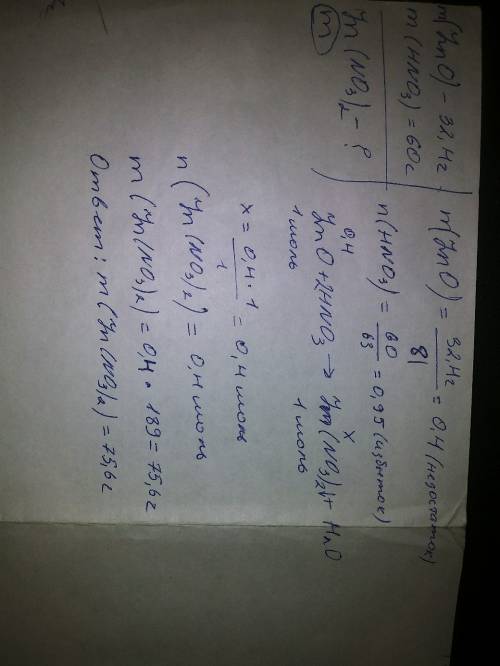 m(ZnO) - 32,4г
m(HNO₃) = 60г
m Zn(NO₃)₂ - ?
n(ZnO) = 32,4г / 81 = 0,4 (недостаток)
n(HNO₃) = 60 / 63 = 0,95 (избыток)
0,4 x
ZnO + 2HNO₃ → Zn(NO₃)₂ + H₂O
1моль 1моль
x = 0,4 · 1 / 1 = 0,4 моль
n(Zn(NO₃)₂) = 0,4 моль
m(Zn(NO₃)₂) = 0,4 · 189 = 75,6г
Ответ: m(Zn(NO₃)₂) = 75,6г